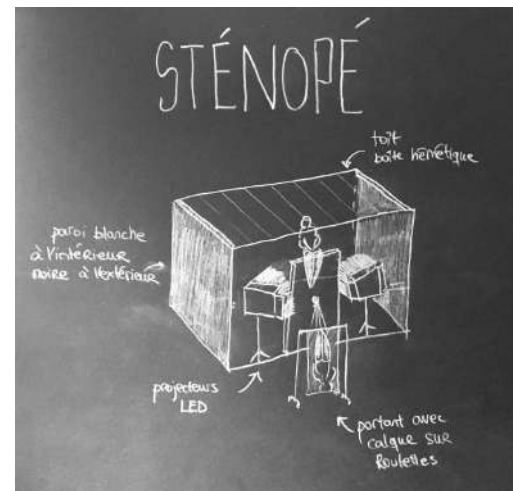 STÉNOPÉ
toit
boîte hérmétique
paroi blanche
à l'intérieur
noire à l'extérieur
projecteurs
LED
portant avec
calque sur
Roulettes